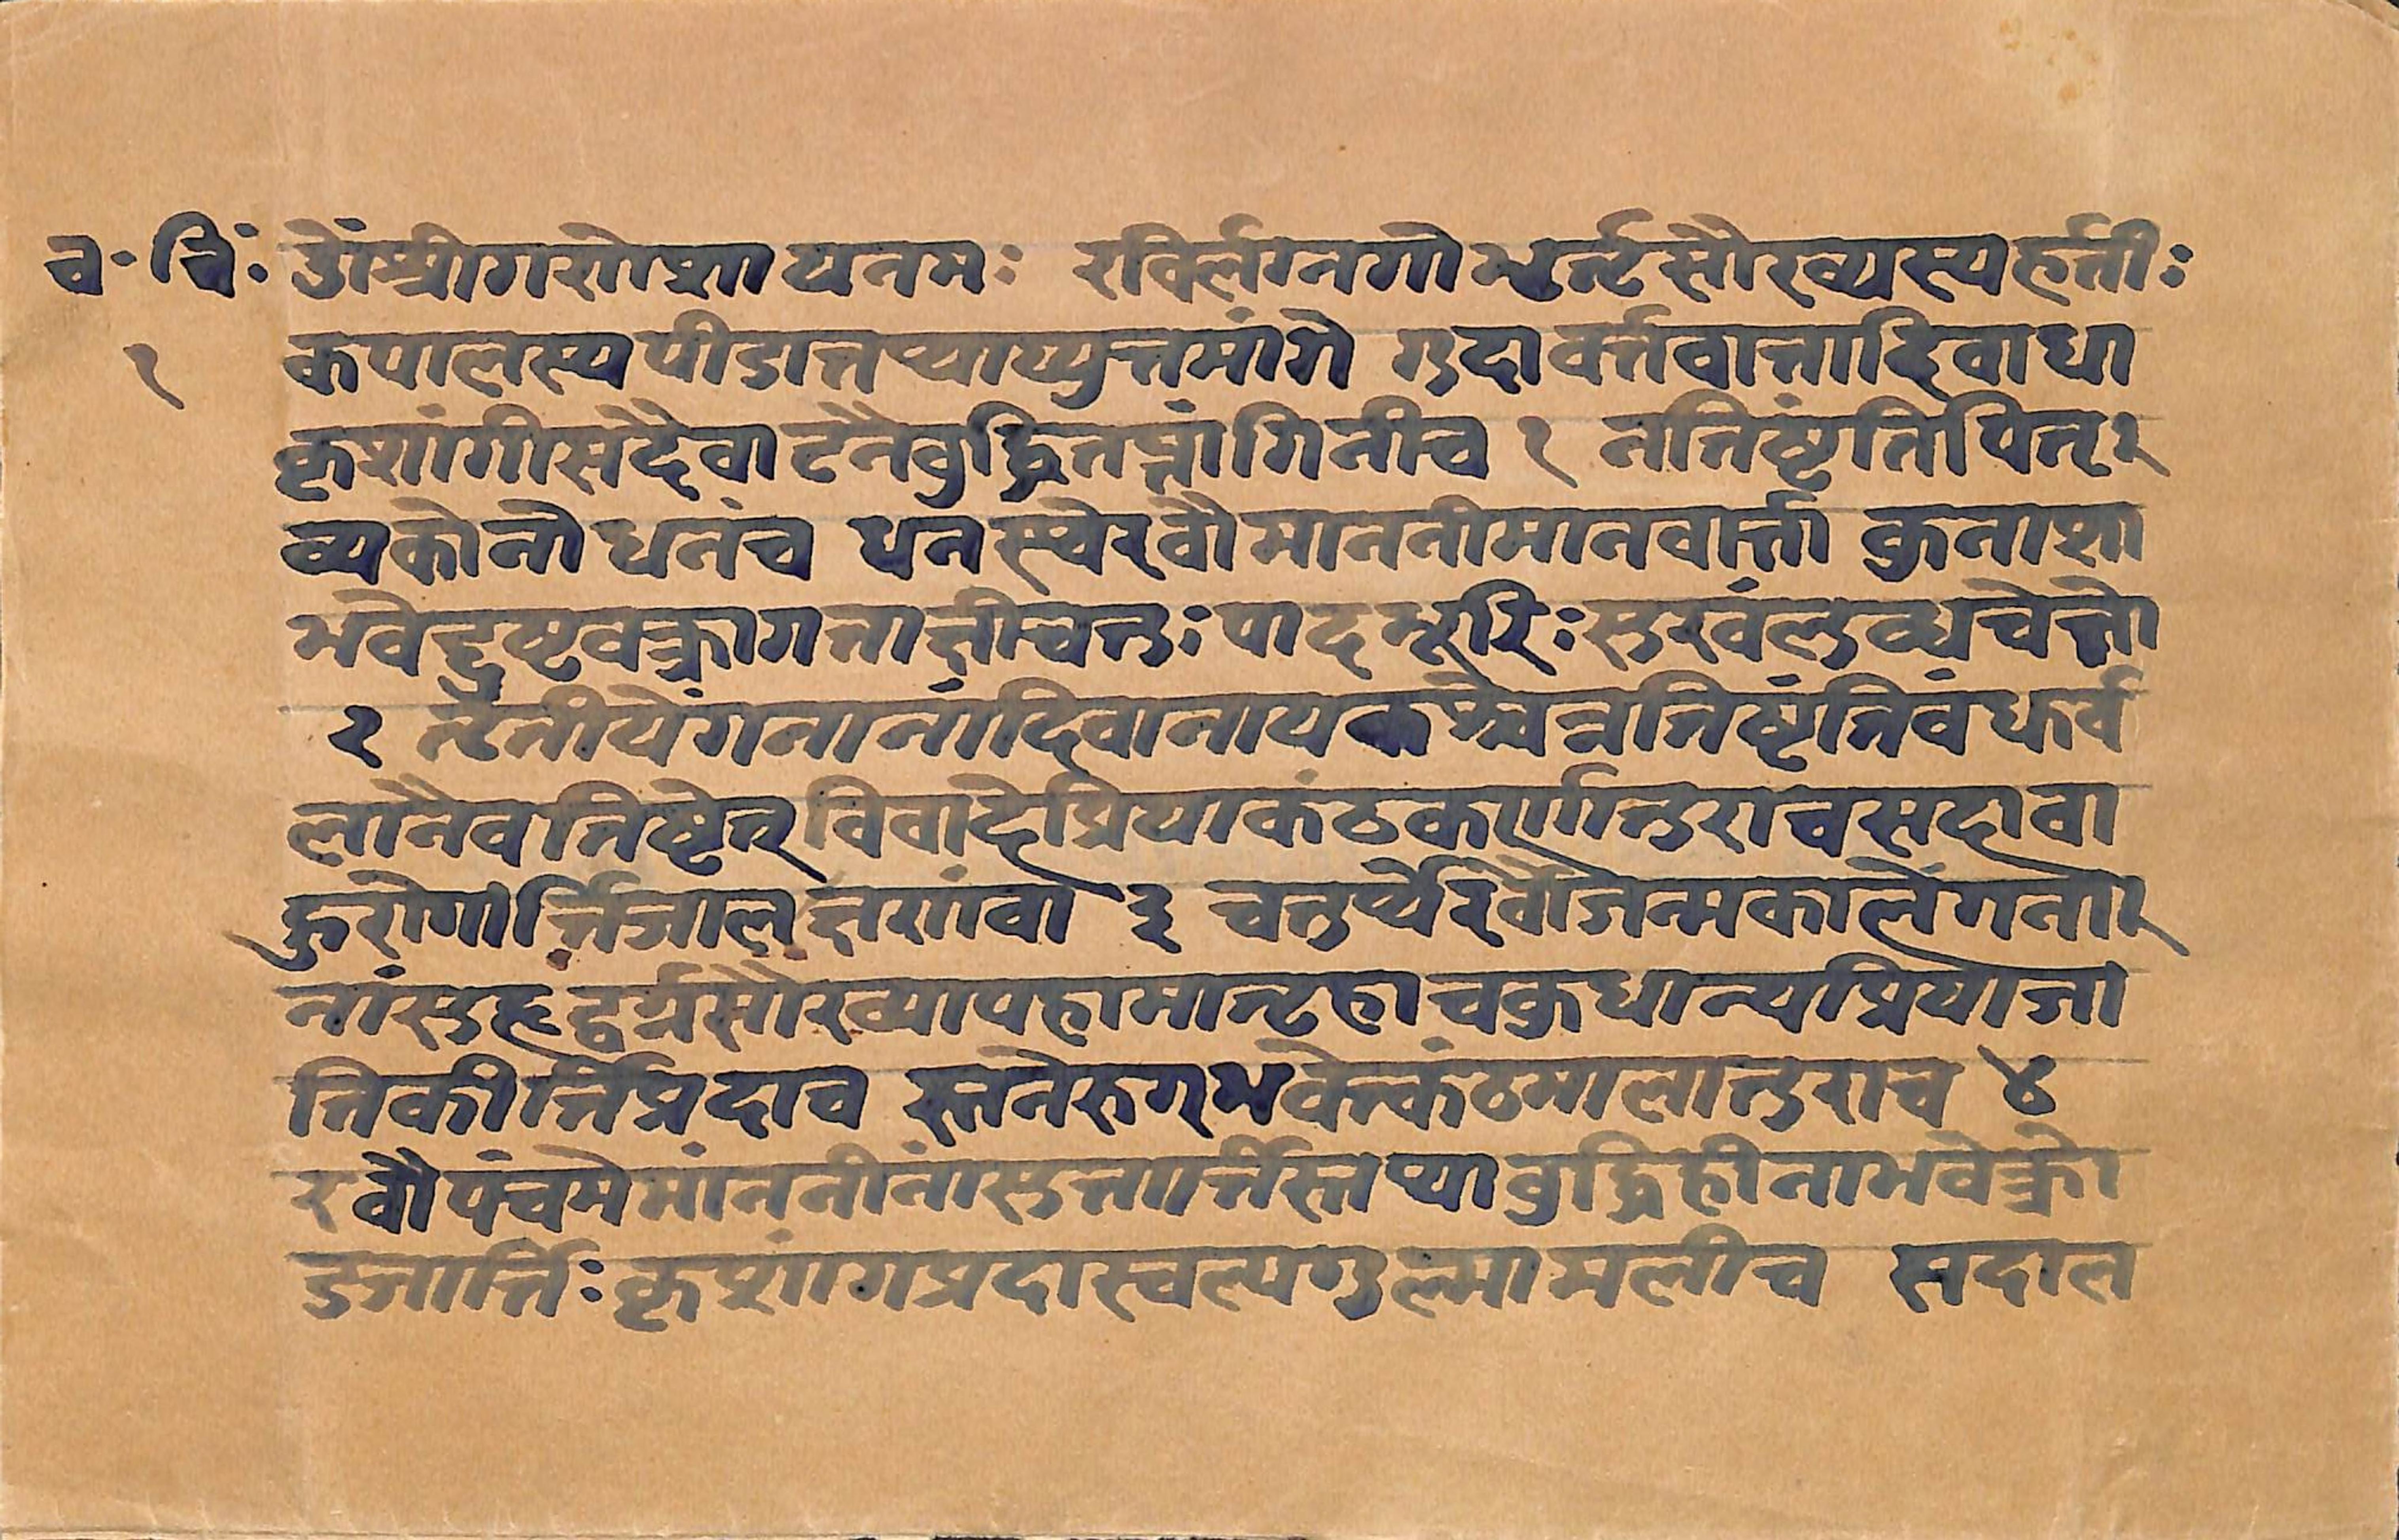 च॰ चिं॰ ॐ श्रीगणेशायनमः रविर्लग्नगो भर्तृसौख्यस्यहर्ता:
१ कपालस्यपीडात्तथाप्युत्तमांगे गुदावर्त्तवातादिवाधा
कृशांगीसदैवा टनैवुद्धितप्तांगिनीच १ नतिष्ठंतिपितृ
व्यकोनो धनंच धनस्थेरवौमाननीमानवार्त्ता कुनाशा
भवेद्दुष्टवक्त्रागतार्त्तीचतुःपादभूरिःसुखंलब्धचेत्तो
२ तृतीयेंगनानांदिवानायकश्चेन्नतिष्ठंतिवंधर्व
लानैवतिष्ठेत्विवादेप्रियाकंठकर्णातुराचसदावा
हुरोगार्त्तिजालंत्तराांवा ३ चतुर्थेरवौजन्मकालेंगना
नांसुहृद्वर्गसौख्यापहामातृहाचकुधान्यप्रियाजा
तिकीर्त्तिप्रदाच स्तनेरुग्भवेत्कंठमालातुराच ४
रवौपंचमेमांननीनांसुतार्त्तिस्तथावुद्धिहीनाभवेत्क्रो
डजार्त्तिः कृशांगप्रदास्वल्पगुल्मामलीच सदाल